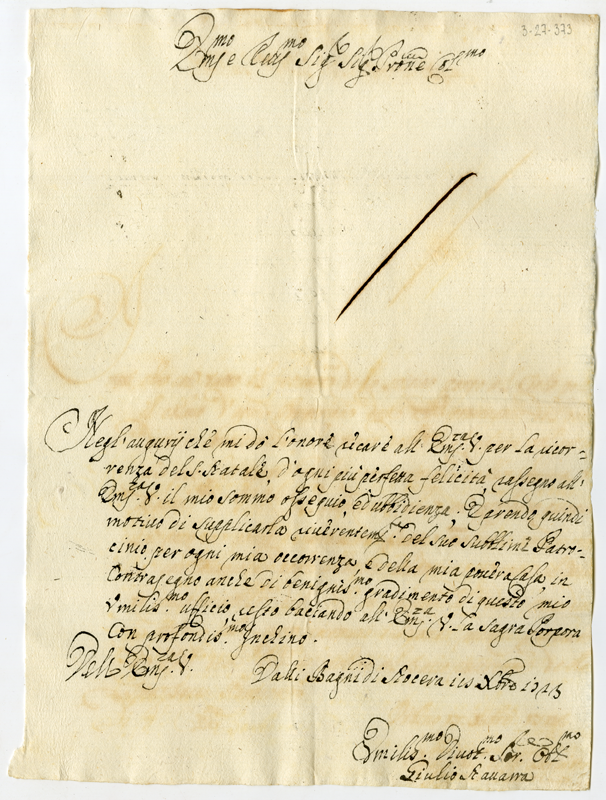 3-27-373
Em.mo e Rev.mo Sig.r Sig.r Prone Col.mo
Negl' augurij che mi do l'onore recare all' Em.za V. per la ricor-
renza del S. Natale, d'ogni più perfetta felicità rassegno all'
Em.za V. il mio sommo ossequio, ed ubbidienza. E prendo quindi
motivo di supplicarla riverentem.te del suo sublime Patro-
cinio per ogni mia occorrenza, e della mia povera Casa, in
Contrasegno anche di benignis.mo gradimento di questo mio
Umilis.mo ufficio, resto baciando all' Em.za V. la Sagra Porpora
con profondis.mo Inchino.
Dell' Em.za V. Dalli Bagni di Nocera Xbre
Umilis.mo Divot.mo Ser. Obl.mo
Giulio Navarra